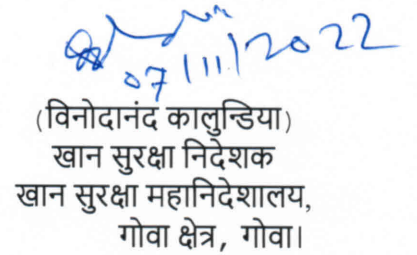 07/11/2022
(विनोदानंद कालुन्डिया)
खान सुरक्षा निदेशक
खान सुरक्षा महानिदेशालय,
गोवा क्षेत्र, गोवा।